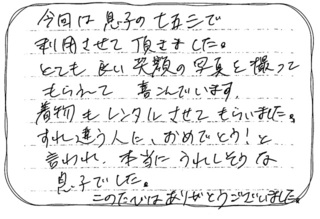 今回は息子の七五三で
利用させて頂きました。
とても良い笑顔の写真を撮って
もらえて喜んでいます。
着物もレンタルさせてもらいました。
すれ違う人に、おめでとう！と
言われ、本当にうれしそうな
息子でした。
このたびはありがとうございました。